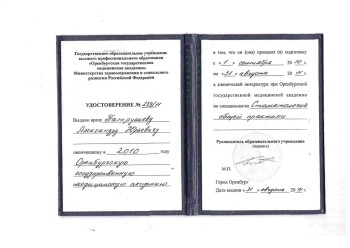 Государственное образовательное учреждение
высшего профессионального образования
«Оренбургская государственная
медицинская академия»
Министерства здравоохранения и социального
развития Российской Федерации
УДОСТОВЕРЕНИЕ №
Выдано врачу Патрушеву
Александру Юрьевичу
окончившему в 2010 году
Оренбургскую
государственную
медицинскую академию
в том, что он (она) прошел (а) подготовку
с «1» сентября 2010
по «31» августа 2011
в клинической интернатуре при Оренбургской
государственной медицинской академии
по специальности Стоматология
общей практики
Руководитель образовательного учреждения
(подпись)
М.П.
Город Оренбург
Дата выдачи «31» августа 2011